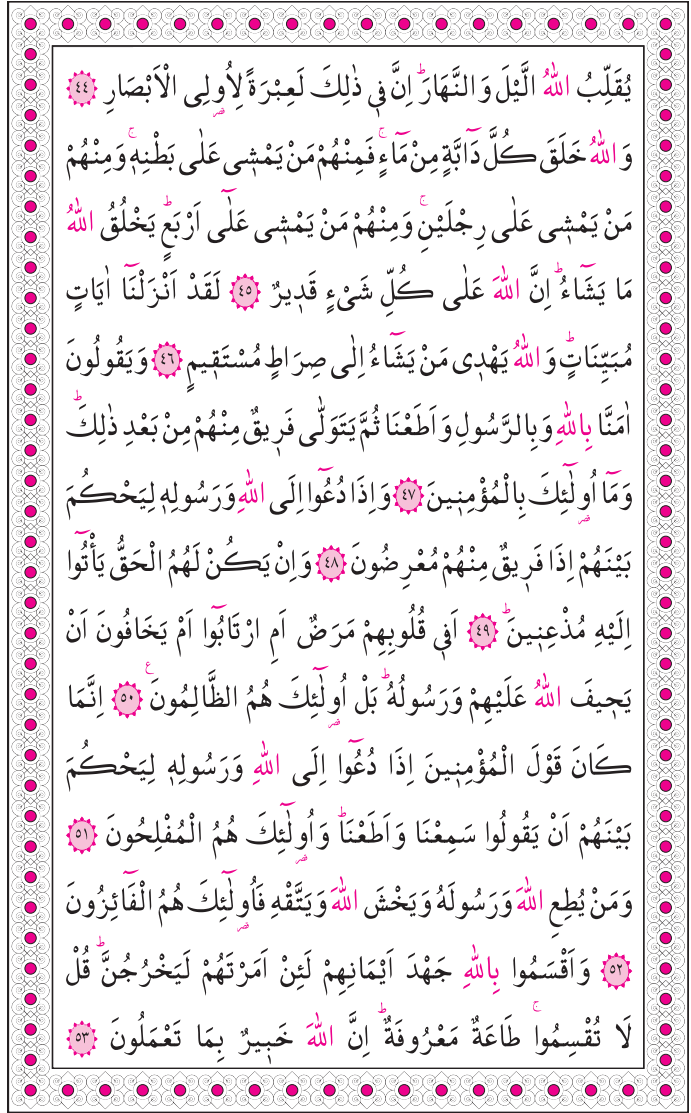 يُقَلِّبُ اللّٰهُ الَّيْلَ وَالنَّهَارَۜ اِنَّ ف۪ي ذٰلِكَ لَعِبْرَةً لِاُو۬لِي الْاَبْصَارِ ﴿٤٤﴾
وَاللّٰهُ خَلَقَ كُلَّ دَٓابَّةٍ مِنْ مَٓاءٍۚ فَمِنْهُمْ مَنْ يَمْش۪ي عَلٰى بَطْنِه۪ۚ وَمِنْهُمْ
مَنْ يَمْش۪ي عَلٰى رِجْلَيْنِۚ وَمِنْهُمْ مَنْ يَمْش۪ي عَلٰٓى اَرْبَعٍۜ يَخْلُقُ اللّٰهُ
مَا يَشَٓاءُۜ اِنَّ اللّٰهَ عَلٰى كُلِّ شَيْءٍ قَد۪يرٌ ﴿٤٥﴾ لَقَدْ اَنْزَلْنَٓا اٰيَاتٍ
مُبَيِّنَاتٍۜ وَاللّٰهُ يَهْد۪ي مَنْ يَشَٓاءُ اِلٰى صِرَاطٍ مُسْتَق۪يمٍ ﴿٤٦﴾ وَيَقُولُونَ
اٰمَنَّا بِاللّٰهِ وَبِالرَّسُولِ وَاَطَعْنَا ثُمَّ يَتَوَلّٰى فَر۪يقٌ مِنْهُمْ مِنْ بَعْدِ ذٰلِكَۜ
وَمَٓا اُو۬لٰٓئِكَ بِالْمُؤْمِن۪ينَ ﴿٤٧﴾ وَاِذَا دُعُٓوا اِلَى اللّٰهِ وَرَسُولِه۪ لِيَحْكُمَ
بَيْنَهُمْ اِذَا فَر۪يقٌ مِنْهُمْ مُعْرِضُونَ ﴿٤٨﴾ وَاِنْ يَكُنْ لَهُمُ الْحَقُّ يَأْتُٓوا
اِلَيْهِ مُذْعِن۪ينَۜ ﴿٤٩﴾ اَف۪ي قُلُوبِهِمْ مَرَضٌ اَمِ ارْتَابُٓوا اَمْ يَخَافُونَ اَنْ
يَح۪يفَ اللّٰهُ عَلَيْهِمْ وَرَسُولُهُۜ بَلْ اُو۬لٰٓئِكَ هُمُ الظَّالِمُونَ۟ ﴿٥٠﴾ اِنَّمَا
كَانَ قَوْلَ الْمُؤْمِن۪ينَ اِذَا دُعُٓوا اِلَى اللّٰهِ وَرَسُولِه۪ لِيَحْكُمَ
بَيْنَهُمْ اَنْ يَقُولُوا سَمِعْنَا وَاَطَعْنَاۜ وَاُو۬لٰٓئِكَ هُمُ الْمُفْلِحُونَ ﴿٥١﴾
وَمَنْ يُطِعِ اللّٰهَ وَرَسُولَهُ وَيَخْشَ اللّٰهَ وَيَتَّقْهِ فَاُو۬لٰٓئِكَ هُمُ الْفَٓائِزُونَ
﴿٥٢﴾ وَاَقْسَمُوا بِاللّٰهِ جَهْدَ اَيْمَانِهِمْ لَئِنْ اَمَرْتَهُمْ لَيَخْرُجُنَّۜ قُلْ
لَا تُقْسِمُواۚ طَاعَةٌ مَعْرُوفَةٌۜ اِنَّ اللّٰهَ خَب۪يرٌ بِمَا تَعْمَلُونَ ﴿٥٣﴾